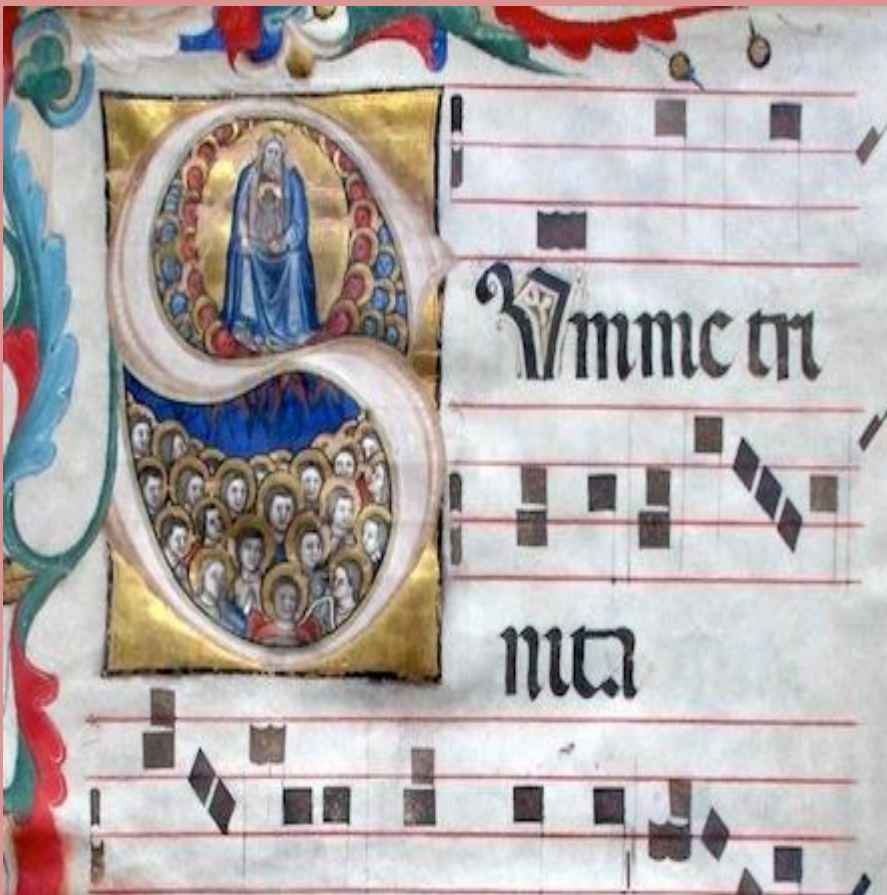 SUmme tri
nita